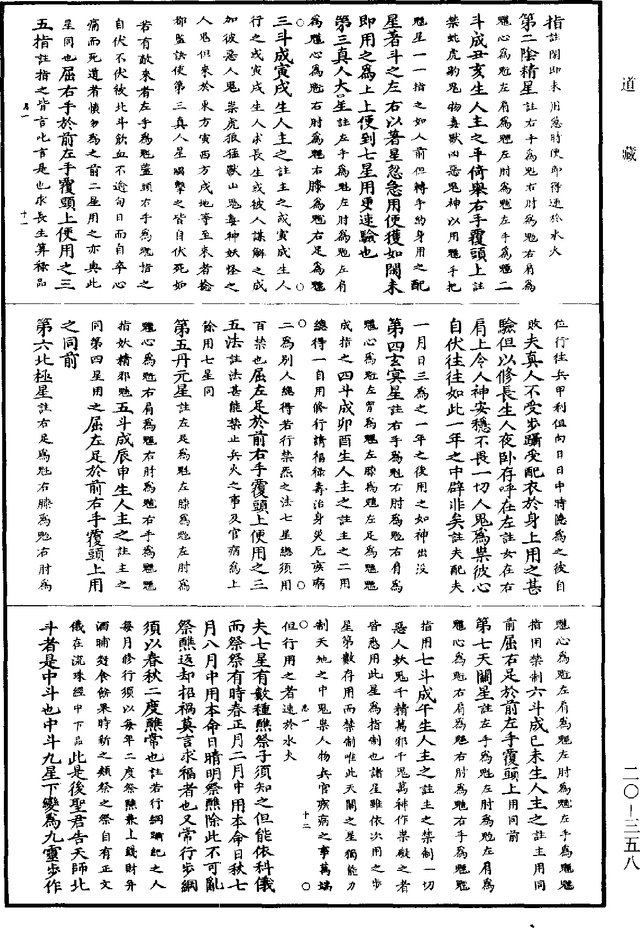 道藏
指註閉即未用急時便即得速於水火
第二陰精星註右手為魁右肘為魁右肩為
魁心為魁左肩為魁左肘為魁左手為魁二
斗成丑亥生人主之平倚舉右手覆頭上註
禁蛇虎豹鬼物毒獸凶惡鬼神以用魁手把
魁星一一指之如人前但轉手約身用之配
星著斗之左右以著星忽急用便獲如閉未
即用之為上上便到七星用更速驗也
第三真人大星註左手為魁左肘為魁左肩
為魁心為魁右肘為魁右膝為魁右足為魁
三斗成寅戌生人主之註主之戌寅戌生人
行之戌寅戌生人求長生或被人謀解之成
加彼惡人鬼祟虎狼猛獸山鬼毒神妖怪之
人鬼但來於東方寅西方戌地等至來者撿
都監訣使第三真人星瞬擊之皆自伏死如
若有敵來者左手為魁蓋頭右手為魁指之
自伏不伏被北斗飲血不逾旬日而自卒心
痛而死道者慎勿為之前二星用之亦與此
星同也屈右手於前左手覆頭上便用之三
五指註指之皆言此言是也求長生算祿品
位行往兵甲利但向日日中時隱為之彼自
敗夫真人不受步躡受配衣於身上用之甚
驗但以修長生人夜卧存呼在左註女在右
肩上令人神安穩不畏一切人鬼為祟彼心
自伏往往如此一年之中辟非矣註夫配夫
一月日三為之一年之後用之如神出沒
第四玄冥星註右手為魁右肘為魁右肩為
魁心為魁左胯為魁左膝為魁左足為魁
成指之四斗成卯酉生人主之註主之二用
總得一自用修行請福祿壽治身災厄疾病
二為別人總得若行禁炁之法七星總須用
百禁也屈左足於前右手覆頭上便用之三
五法註法甚能禁止兵火之事及官病為上
餘用七星同
第五丹元星註左足為魁左膝為魁左肘為
魁心為魁右肩為魁右肘為魁右手為魁魁
指妖精邪魁五斗成辰申生人主之註主之
同第四星用之屈左足於前右手覆頭上用
之同前
第六北極星註右足為魁右膝為魁右肘為
魁心為魁左肩為魁左肘為魁左手為魁魁
指用禁制六斗成巳未生人主之註主用同
前屈右足於前左手覆頭上用同前
第七天關星註左手為魁左肘為魁左肩為
魁心為魁右肩為魁右肘為魁右手為魁魁
指用七斗成午生人主之註主之禁制一切
惡人妖鬼千精萬邪千鬼萬神作祟厭之者
皆應用此星為指制也諸星雖依次用之步
星第數存用而禁制唯此天關之星獨能力
制天地之中鬼祟人物兵官疾病之事萬端
但行用之者速於水火
夫七星有數種醮祭子須知之但能依科儀
而祭祭有時春正月二月中用本命日秋七
月八月中用本命日晴明祭醮除此不可亂
祭醮返却招禍莫言求福者也又常行步綱
須以春秋二度醮常也註若行綱躡紀之人
每月修行須以每年二度祭醮兼上錢財并
酒脯發食餅果時新之類祭之祭自有正文
儀在流珠經中下品此是後聖君告天師北
斗者是中斗也中斗九星下變為九靈步作
二〇—三五八